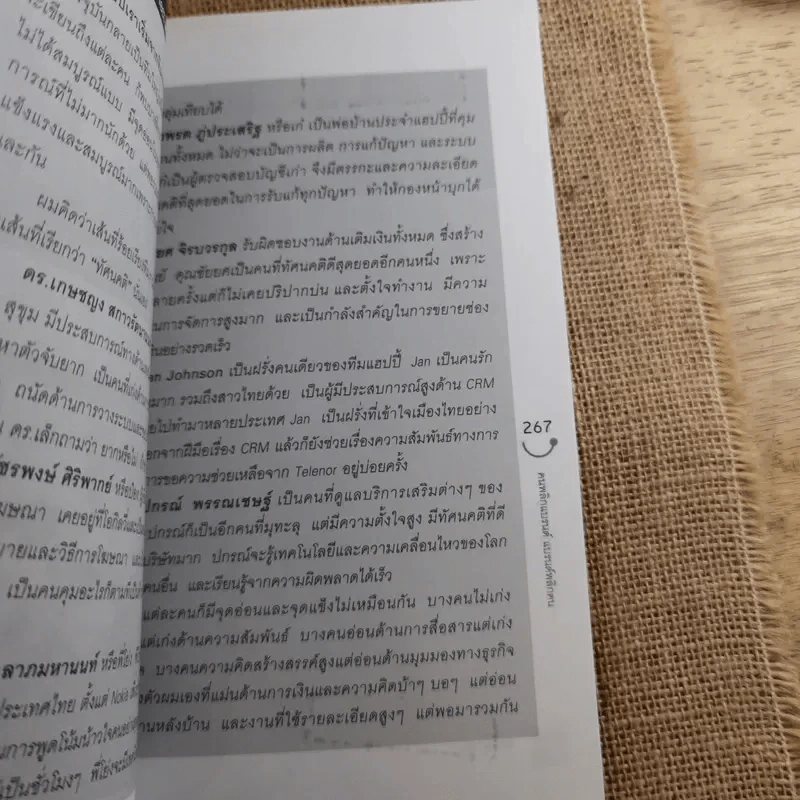 ปเราเริ่มจาก
จุบันกลายเป็นทีม
ะเขียนถึงแต่ละคน
ไม่ได้สมบูรณ์แบบ มีจุดอ่อน
การณ์ที่ไม่มากนักด้วย
แข็งแรงและสมบูรณ์มากเพราะ
ละกัน
ผมคิดว่าเส้นที่ร้อยเรียง
เส้นที่เรียกว่า "ทัศนคติ"
ดร.เกษชญง สภาวรัตน
สุขุม มีประสบการณ์ทางด้าน
หาตัวจับยาก เป็นคนที่เก่งด้าน
ถนัดด้านการวางระบบและ
น ดร.เล็กถามว่า ยากหรือไม่
ัชรพงษ์ ศิริพากย์ หรือป๋อง
ฆษณา เคยอยู่ที่โอกิลวี่และเป็น
ขายและวิธีการโฆษณา และ
เป็นคนคุมอะไรก็ตามที่เป็น
ลาภมหานนท์ หรือพี่โย่ง
ประเทศไทย ตั้งแต่ Nokia
นการพูดโน้มน้าวใจคนอย่าง
ด้เป็นชั่วโมงๆ พี่โย่งจะ
ลุ่มเทียบได้
พรต ภู่ประเสริฐ หรือเก๋ เป็นพ่อบ้านประจำแฮปปี้ที่คุม
านทั้งหมด ไม่ว่าจะเป็นการผลิต การแก้ปัญหา และระบบ
ก๋เป็นผู้ตรวจสอบบัญชีเก่า จึงมีตรรกะและความละเอียด
นคติที่สุดยอดในการรับแก้ทุกปัญหา ทำให้กองหน้าบุกได้
ใจ
ยศ จิรบวรกุล รับผิดชอบงานด้านเติมเงินทั้งหมด ซึ่งสร้าง
คุณชัยยศเป็นคนที่ทัศนคติดีสุดยอดอีกคนหนึ่ง เพราะ
ลายครั้งแต่ก็ไม่เคยปริปากบ่น และตั้งใจทำงาน มีความ
นการจัดการสูงมาก และเป็นกำลังสำคัญในการขยายช่อง
้นอย่างรวดเร็ว
an Johnson เป็นฝรั่งคนเดียวของทีมแฮปปี้ Jan เป็นคนรัก
มาก รวมถึงสาวไทยด้วย เป็นผู้มีประสบการณ์สูงด้าน CRM
ยไปทำมาหลายประเทศ Jan เป็นฝรั่งที่เข้าใจเมืองไทยอย่าง
อกจากฝีมือเรื่อง CRM แล้วก็ยังช่วยเรื่องความสัมพันธ์ทางการ
การขอความช่วยเหลือจาก Telenor อยู่บ่อยครั้ง
ปกรณ์ พรรณเชษฐ์ เป็นคนที่ดูแลบริการเสริมต่างๆ ของ
ปกรณ์ก็เป็นอีกคนที่มุทะลุ แต่มีความตั้งใจสูง มีทัศนคติที่ดี
บริษัทมาก ปกรณ์จะรู้เทคโนโลยีและความเคลื่อนไหวของโลก
คนอื่น และเรียนรู้จากความผิดพลาดได้เร็ว
ต่ละคนก็มีจุดอ่อนและจุดแข็งไม่เหมือนกัน บางคนไม่เก่ง
ต่เก่งด้านความสัมพันธ์ บางคนอ่อนด้านการสื่อสารแต่เก่ง
บางคนความคิดสร้างสรรค์สูงแต่อ่อนด้านมุมมองทางธุรกิจ
งตัวผมเองที่แม่นด้านการเงินและความคิดบ้าๆ บอๆ แต่อ่อน
านหลังบ้าน และงานที่ใช้รายละเอียดสูงๆ แต่พอมารวมกัน
267
คนพลิกแบรนด์ แบรนด์พลิกคน